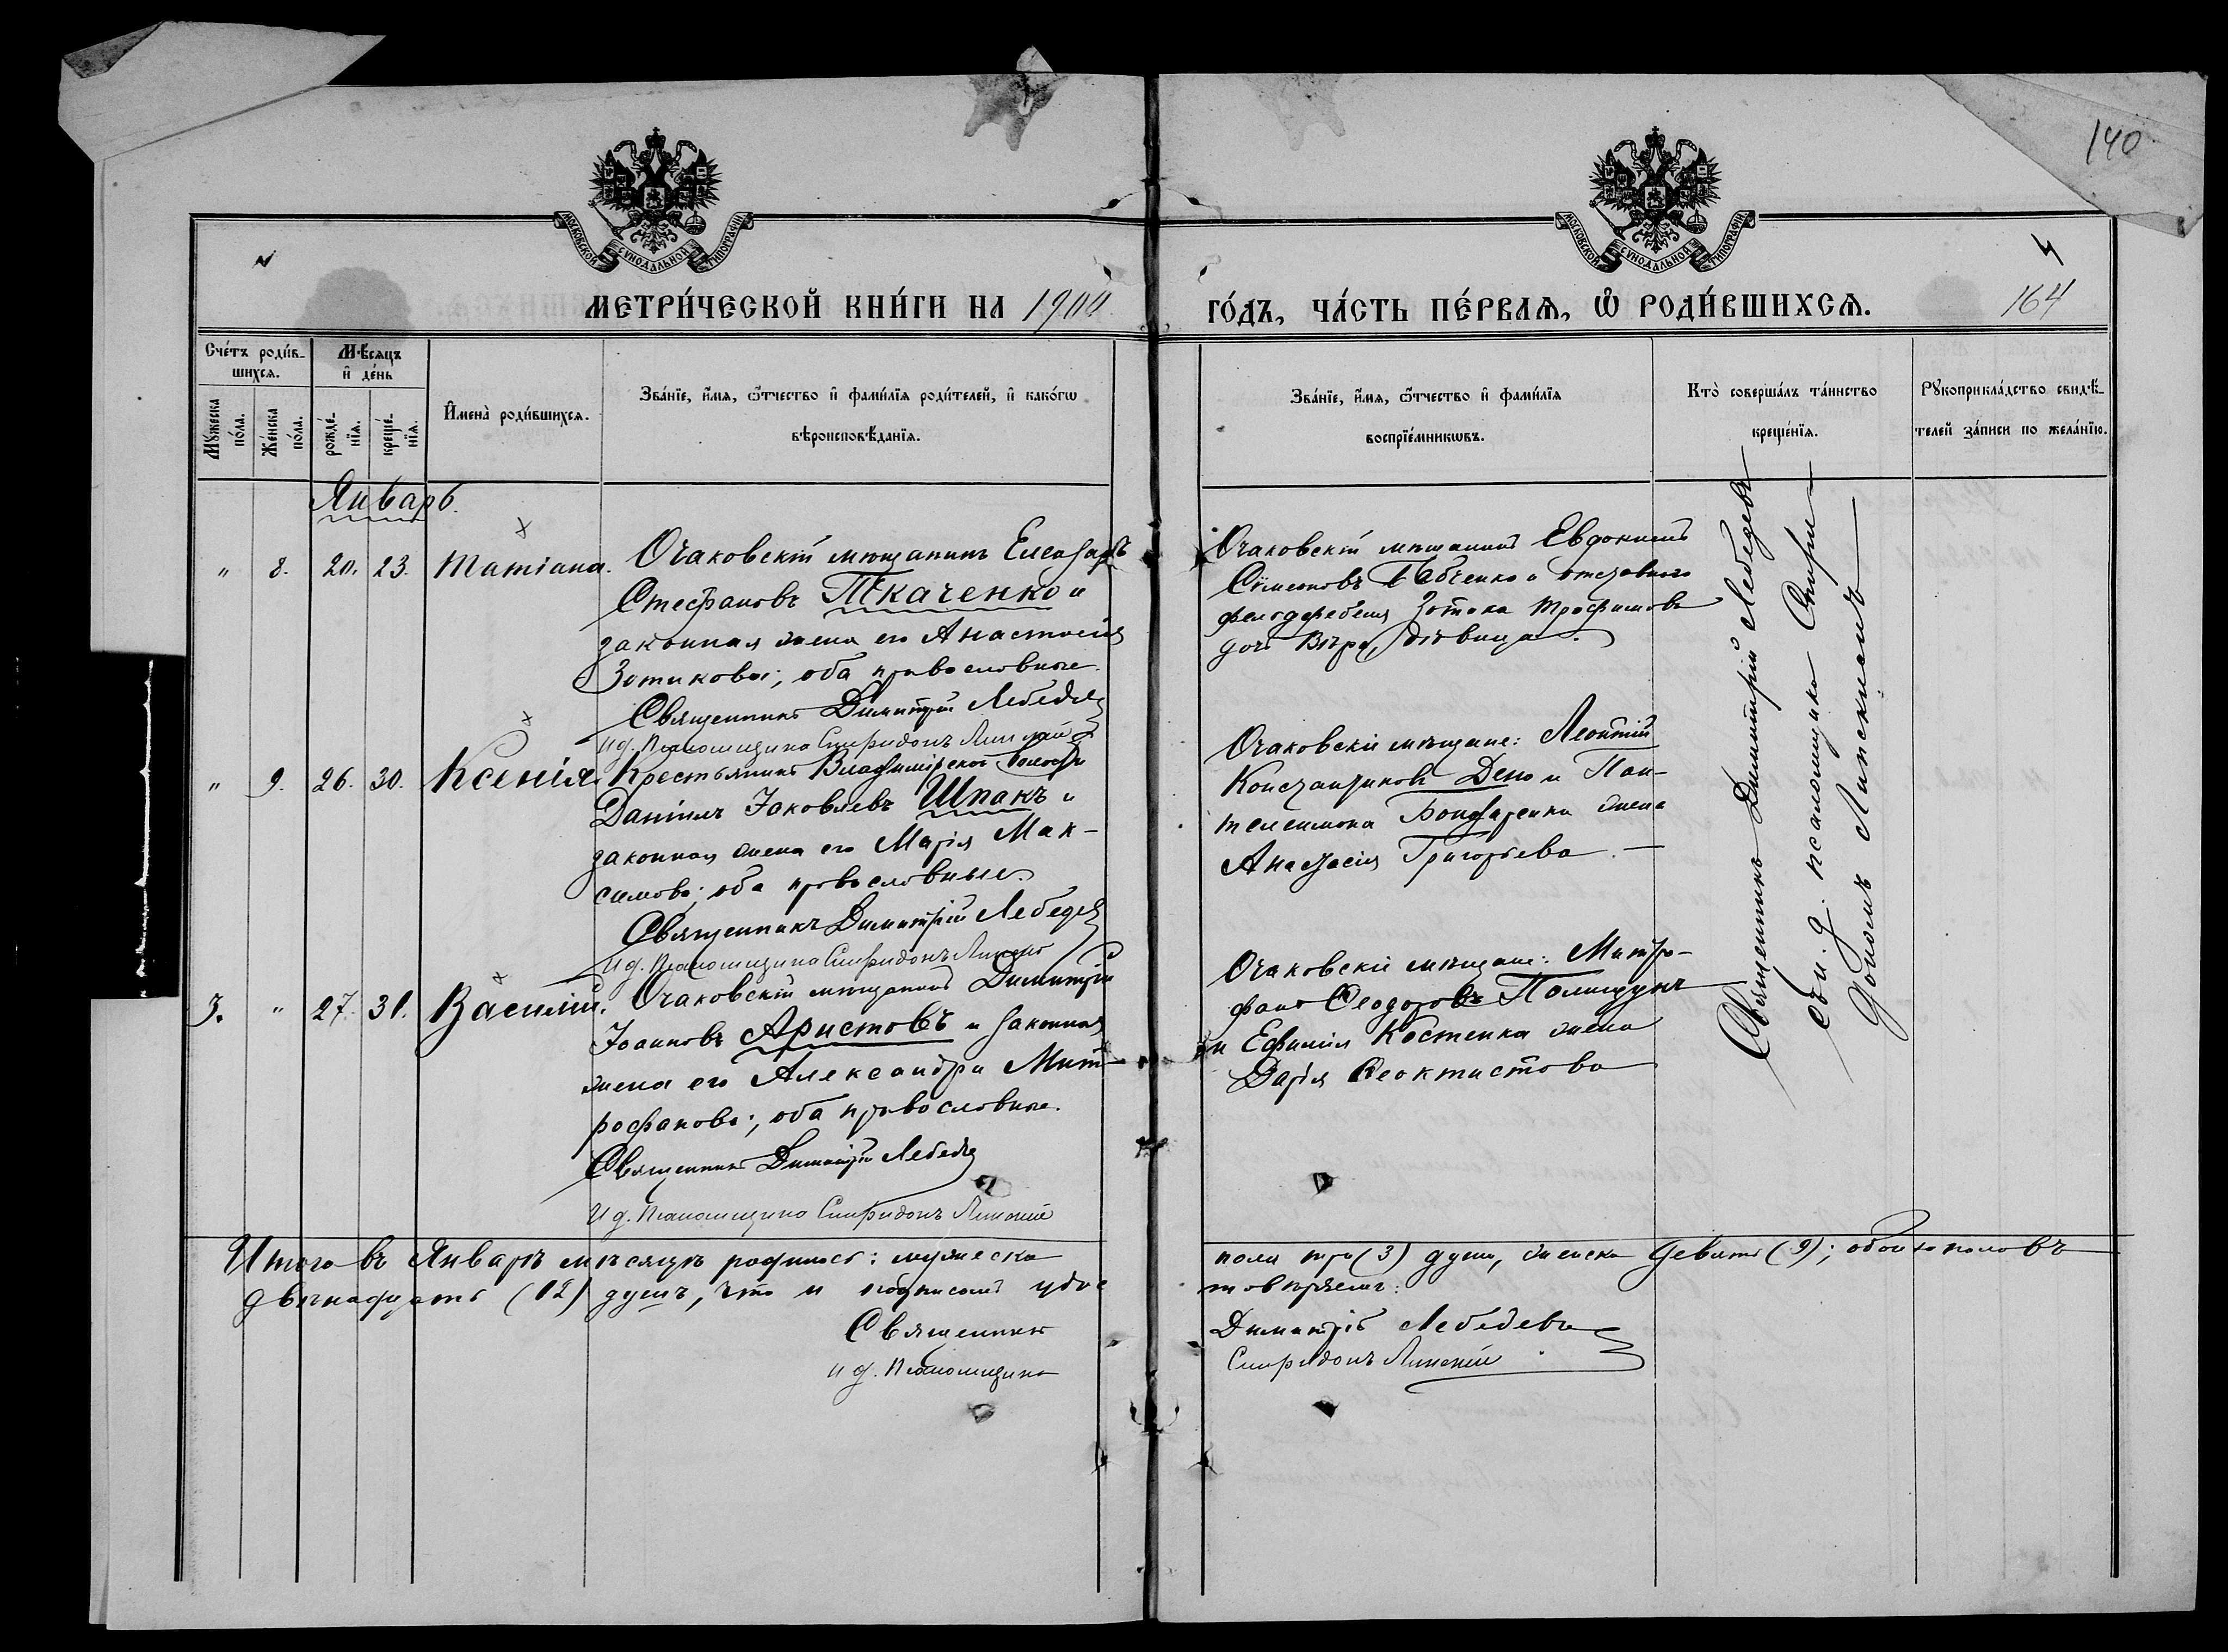 140
МОСКОВСКОЙ СѴНОДАЛЬНОЙ ТИПОГРАФІИ
МОСКОВСКОЙ СѴНОДАЛЬНОЙ ТИПОГРАФІИ
МЕТРИ́ЧЕСКОЙ КНИ́ГИ НА 1900
ГО́ДЪ, ЧА́СТЬ ПЕ́РВАѦ, Ѽ РОДИ́ВШИХСѦ.
164
Сче́тъ роди́в-
шихсѧ.
Мѣ́сѧцъ
и҆ де́нь
Мꙋ́жеска
по́ла.
Же́нска
по́ла.
рожде́-
нїѧ.
креще́-
нїѧ.
И҆мена̀ роди́вшихсѧ.
Зва́нїе, и҆́мѧ, ѻ҆́тчество и҆ фами́лїѧ роди́телей, и҆ како́гѡ
вѣроисповѣ́данїѧ.
Зва́нїе, и҆́мѧ, ѻ҆́тчество и҆ фами́лїѧ
воспрїе́мникѡвъ.
Кто̀ соверша́лъ та́инство
креще́нїѧ.
Рꙋкоприкла́дство свидѣ́-
телей за́писи по жела́нїю.
Январь.
" 8. 20. 23. Татіана. Очаковскій мѣщанинъ Елеазаръ
Стефановъ Ткаченко и
законная жена его Анастасія
Зотикова; оба православные.
Священникъ Димитрій Лебедевъ
И д. Псаломщика Спиридонъ Липскій
Очаковскій мѣщанинъ Евдокимъ
Сѵмеоновъ и отставного
фельдфебеля Зотика Трофимова
дочь Вѣра, дѣвица.
" 9. 26. 30. Ксенія. Крестьянинъ Владимірской волости
Даніилъ Іаковлевъ Шпакъ и
законная жена его Марія Мак-
симова; оба православные.
Священникъ Димитрій Лебедевъ
И д. Псаломщика Спиридонъ Липскій
Очаковскіе мѣщане: Леонтій
Константиновъ и Пан-
телеимона Бондаренка жена
Анастасія Григорьева. —
3. " 27. 31. Василій. Очаковскій мѣщанинъ Димитрій
Іоанновъ Аристовъ и законная
жена его Александра Мит-
рофанова; оба православные.
Священникъ Димитрій Лебедевъ
И д. Псаломщика Спиридонъ Липскій
Очаковскіе мѣщане: Митро-
фанъ Ѳеодоровъ Полищукъ
и Ефимія Костенка жена
Дарія Ѳеоктистова
Священникъ Димитрій Лебедевъ
съ и. д. псаломщика Спири-
дономъ Липскимъ
Итого въ Январѣ мѣсяцѣ родилось: мужеска
пола три (3) души, женска девять (9); обоего половъ
двѣнадцать (12) душъ, что и подписомъ удос
товѣряемъ:
Священникъ
Димитрій Лебедевъ
И д. Псаломщика
Спиридонъ Липскій